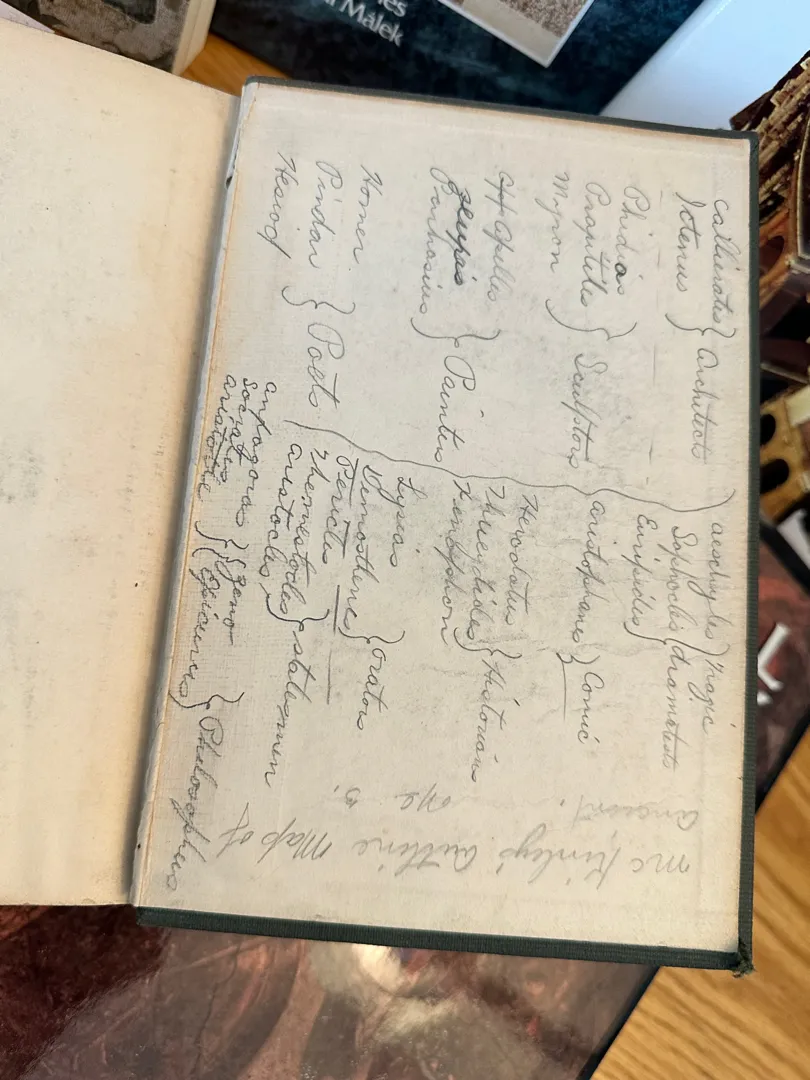 Callicrates } Architects
Ictenus
Phidias
Praxitiles } Sculptors
Myron
Apelles
Zeuxis } Painters
Parhasius
Homer
Pindar } Poets
Hesiod
aeschyles } Tragic
Sophocles dramatists
Euripides
aristophanes } Comic
Herodotus
Thucydides } Historians
Xenophon
Lysias
Demosthenes } orators
Pericles
Themestocles } statesmen
aristocles
anaxagoras
Socrates } Zeno
aristotle } Epicurus } Philosophers
Mc Kinleys' outline Map of
ancient.
es
Malek
L